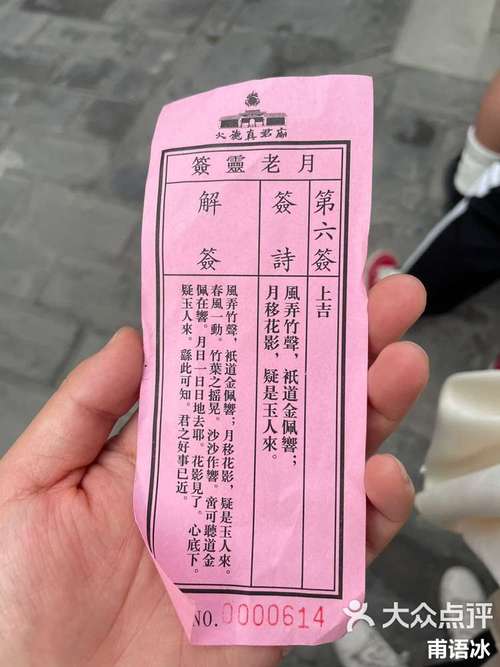 火德真君廟
月老靈簽
第六簽
上吉
簽詩
風弄竹聲，祇道金佩響；
月移花影，疑是玉人來。
解簽
風弄竹聲，祇道金佩響；月移花影，疑是玉人來。
春風一動。竹葉之搖晃。沙沙作響。啻可聽道金
佩在響。月日一日日地去耶。花影見了。心底下。
疑玉人來。繇此可知。君之好事已近。
NO. 0000614
大众点评
甫语冰